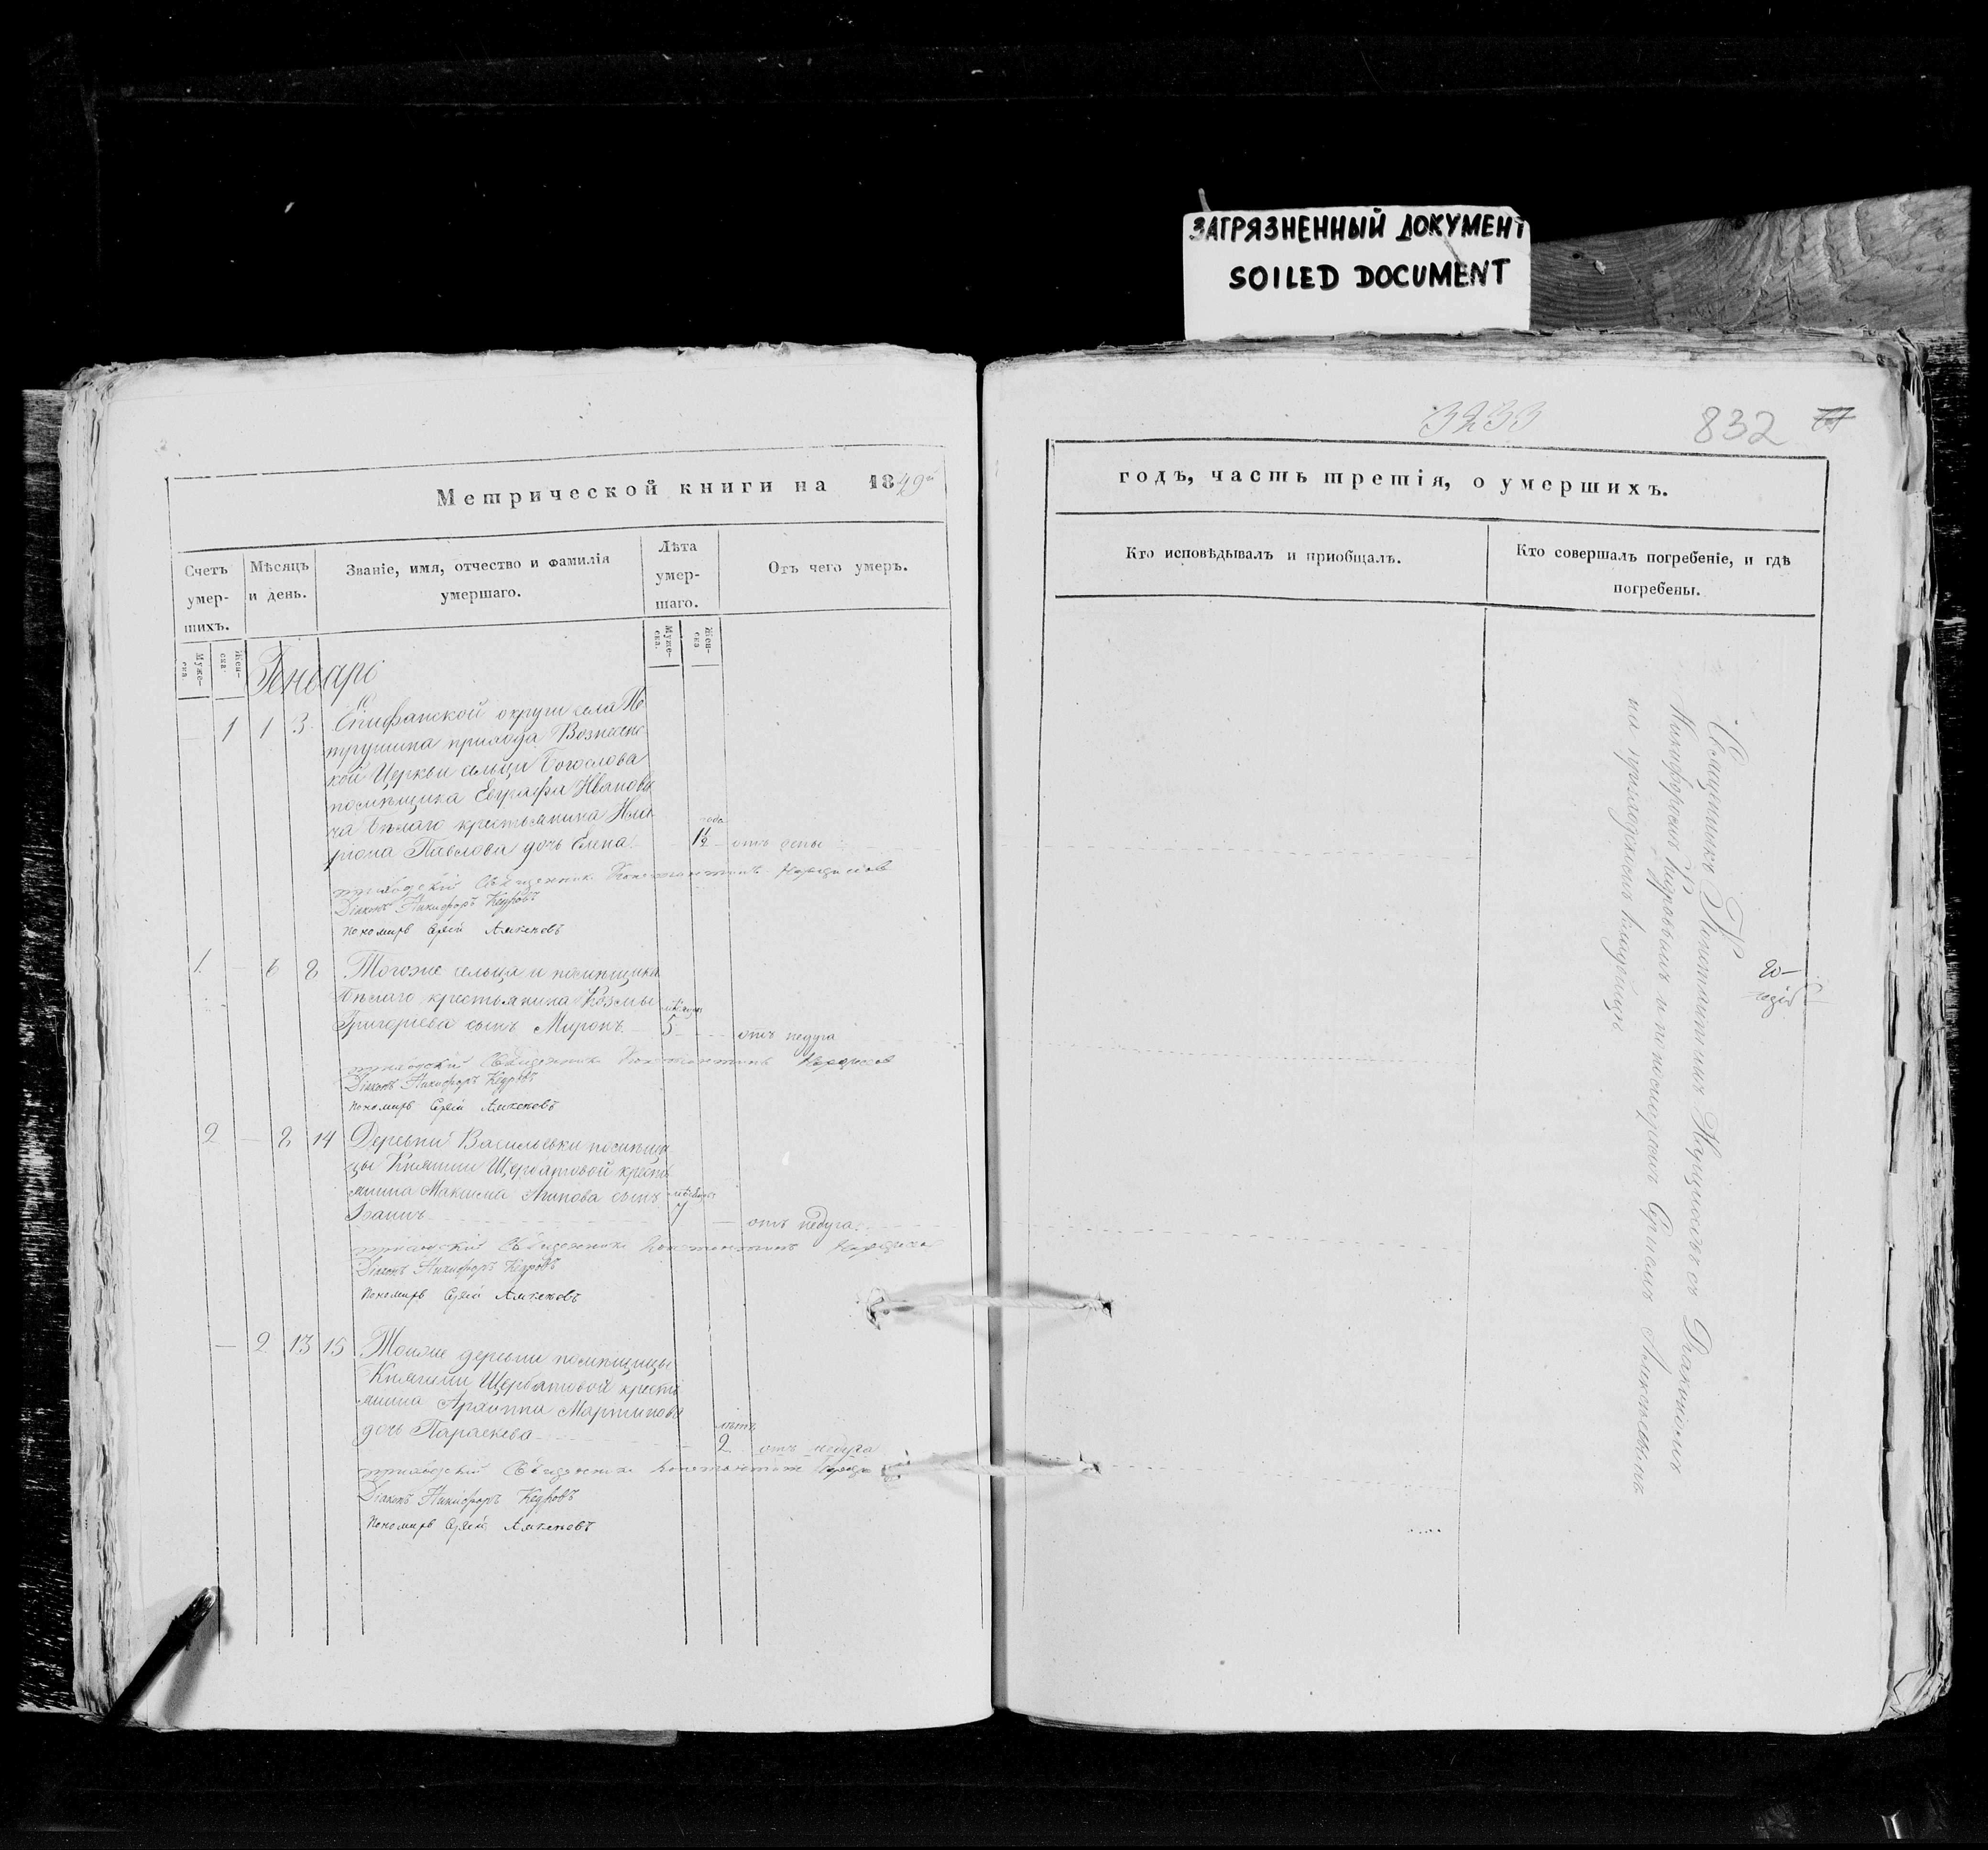 ЗАГРЯЗНЕННЫЙ ДОКУМЕНТ
SOILED DOCUMENT
832
Метрической книги на 1849й
Счетъ умер-шихъ.
Мѣсяцъ и день.
Званіе, имя, отчество и фамилія умершаго.
Лѣта умер-шаго.
Отъ чего умеръ.
Муже-ска.
Жен-ска.
Муже-ска.
Жен-ска
Генварь
1 1 3 Епифанской округи села Пе
трушина прихода Вознесенс
кой Церкви сельца Богослова
помѣщика Евграфа Иванови
ча Бѣлаго крестьянина Ила
ріона Павлова дочь Елена года 1½ отъ
приходскій Священникъ Константинъ Нарциссовъ
Діаконъ Никифоръ Кедровъ
Пономарь Сергій
1 6 8 Тогоже сельца и помѣщика
Бѣлаго крестьянина Козмы
Григорьева сынъ Миронъ 5 отъ недуга
приходскій Священникъ Константинъ Нарциссовъ
Діаконъ Никифоръ Кедровъ
Пономарь Сергій
2 8 14 Деревни Васильевки помѣщи
цы Княгини Щербатовой кресть
янина Максима сынъ
Іоаннъ 7 отъ недуга
приходскій Священникъ Константинъ
Діаконъ Никифоръ Кедровъ
Пономарь Сергій
2 13 15 Тойже деревни помѣщицы
Княгини Щербатовой кресть
янина Архиппа Мартинова
дочь Параскева лѣтъ 2 отъ недуга
приходскій Священникъ Константинъ
Діаконъ Никифоръ Кедровъ
Пономарь Сергій
годъ, часть третія, о умершихъ.
Кто исповѣдывалъ и пріобщалъ.
Кто совершалъ погребеніе, и гдѣ
погребены.
Священникъ Константинъ Нарциссовъ съ Діакономъ
Никифоромъ Кедровымъ и пономаремъ Сергіемъ
на приходскомъ кладбищѣ